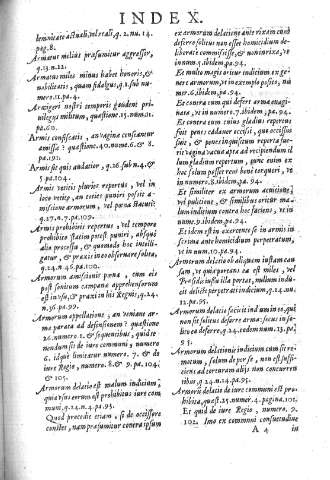 INDEX.
leminicati actuali, vel tali, q. 2. nu. 14.
pag. 8.
Armatus melius præsumitur aggressor,
q. 13. n. 22.
Armatus miles minus habet honeris, &
nobilitatis, quam fidalgus, q. 1. sub nu-
mero. 11. pa. 4.
Armigeri nostri temporis gaudent pri-
vilegijs militum, quæstione. 15. num. 11.
pa. 60.
Armis confiscatis, an vagina censeatur
amissa? quæstione. 40. nume. 6. & 8.
pa. 192.
Armis sit quis audatior, q. 26. sub n. 4. &
5. pa. 104.
Armis vetitis pluries repertus, vel in
loco vetito, an ter puniri possit a-
missione armorum, vel pœna statuti,
q. 27. n. 7. pa. 109.
Armis prohibitis repertus, vel tempore
prohibito statim potest puniri, absque
alio processu, & quomodo hoc intelli-
gatur, & praxis in eo observare solita,
q. 24. n. 46. pa. 100.
Armorum amissiuit pœna, cum eis
post sonitum campanæ apprehensorum
est in usu, & praxi in his Regnis, q. 24.
n. 36. pa. 99.
Armorum appellatione, an veniant ar-
ma parata ad defensionem? quæstione
26. numero. 1. & sequentibus, quid te-
nendum sit de iure communi, numero
6. idque limitatur numero. 7. & de
iure Regio, numero. 8. & 9. pa. 104.
& 105.
Armorum delatio est malum indicium,
quia usus eorum est prohibitus iure com-
muni, q. 24. n. 4. pa. 93.
Quod procedit etiam, si de occisore
constet, nam præsumitur contra ipsum
ex armorum delatione ante rixam com-
deferre solitus non esset homicidium de-
liberate commisisse, & non in rixa, vt
in num. 5. ibidem, pa. 94.
Et multo magis oritur indicium ex ge-
nere armorum, vt in exemplo posito, nu-
mer. 6. ibidem, pa. 94.
Et contra eum qui defert arma enagi-
nata, vt in numero. 7. ibidem, pa. 94.
Et contra eum cuius gladius repertus
fuit penes cadaver occisi, que occisus
fuit, & penes inquisitum reperta fue-
rit vagina vacua apta ad recipiendum il-
lum gladium repertum, puuc enim ex
hoc solum posset reus bene torqueri, vt
in numero. 8. ibidem, pa. 94.
Et similiter ex armorum acuitione,
vel pulitione, & similibus oritur ma-
lum inditium contra hoc faciens, vt in
nume. 9. pa. 94.
Et idem est in exercente se in armis in-
scrima ante homicidium perpetratum,
vt in num. 10. pa. 94.
Armorum delatio ob aliquem iustam cau-
sam, vt quia portans ea est miles, vel
Præses ius illa portas, nullum indi-
cat delicti perpetrati indicium, q. 24. nu.
12. pa. 95.
Armorum delatio socio ut ind animo se, qui
non sit solitus deferre armafacus in so-
lito ea deferre, q. 24. eodem num. 13. pa.
95.
Armorum delationis indicium cum sit re-
motum, solum de per se, non est suffici-
ens ad torturam alijs non concurrenti-
bus, q. 24. n. 14. pa. 95.
Armorum delatio de iure communi est pro-
hibita, quæst. 25. numer. 4. pagina. 101.
Et quid de iure Regio, numero. 9.
102. Imo ex communi consuetudine
A 4 in